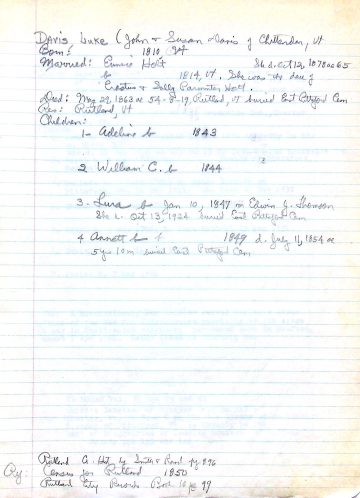 Davis Luke (John & Susan Davis of Chittenden, Vt
Born: 1810, Vt
Married: Eunice Holt She d. Oct 12, 1878 ae 65
b 1814, Vt. She was the dau of
Erastus & Sally Parmenter Holt.
Died: May 29, 1863 ae 54-8-19, Rutland, Vt buried East Pittsford Cem
Res: Rutland, Vt
Children:
1- Adeline b 1843
2 William C. b 1844
3- Lura b Jan 10, 1847 m Edwin J. Thomson
She d. Oct 13, 1924 buried East Pittsford Cem
4 Annett b 1849 d. July 11, 1854 ae
5ys 10m buried East Pittsford Cem
Rutland Co. Hist by Smith & Rann pg 896
Census for Rutland 1850
Rutland City Records Book 16 pg 99